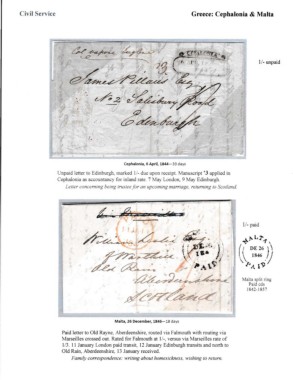 Civil Service
Greece: Cephalonia & Malta
1/- unpaid
James
No 2 Salisbury Road
Edenburgh
Cephalonia, 6 April, 1844—33 days
Unpaid letter to Edinburgh, marked 1/- due upon receipt. Manuscript '3 applied in
Cephalonia as accountancy for inland rate. 7 May London, 9 May Edinburgh
Letter concerning being trustee for an upcoming marriage, returning to Scotland
1/- paid
William
Old Rain
Aberdeenshire
Scotland
MALTA
DE 26
1846
PAID
Malta split ring
Paid cds
1842-1857
Malta, 26 December, 1846—18 days
Paid letter to Old Rayne, Aberdeenshire, routed via Falmouth with routing via
Marseilles crossed out. Rated for Falmouth at 1/-, versus via Marseilles rate of
1/3. 11 January London paid transit, 12 January Edinburgh transit and north to
Old Rain, Aberdeenshire, 13 January received.
Family correspondence, writing about homesickness, wishing to return.